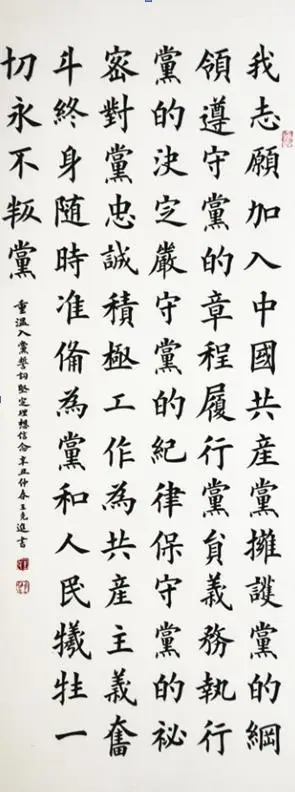 我志願加入中國共産黨擁護黨的綱
領遵守黨的章程履行黨員義務執行
黨的決定嚴守黨的紀律保守黨的祕
密對黨忠誠積極工作為共産主義奮
斗終身随時准俻為黨和人民犧牲一
切永不叛黨
重温入黨誓詞堅定理想信念辛丑仲春王克進書